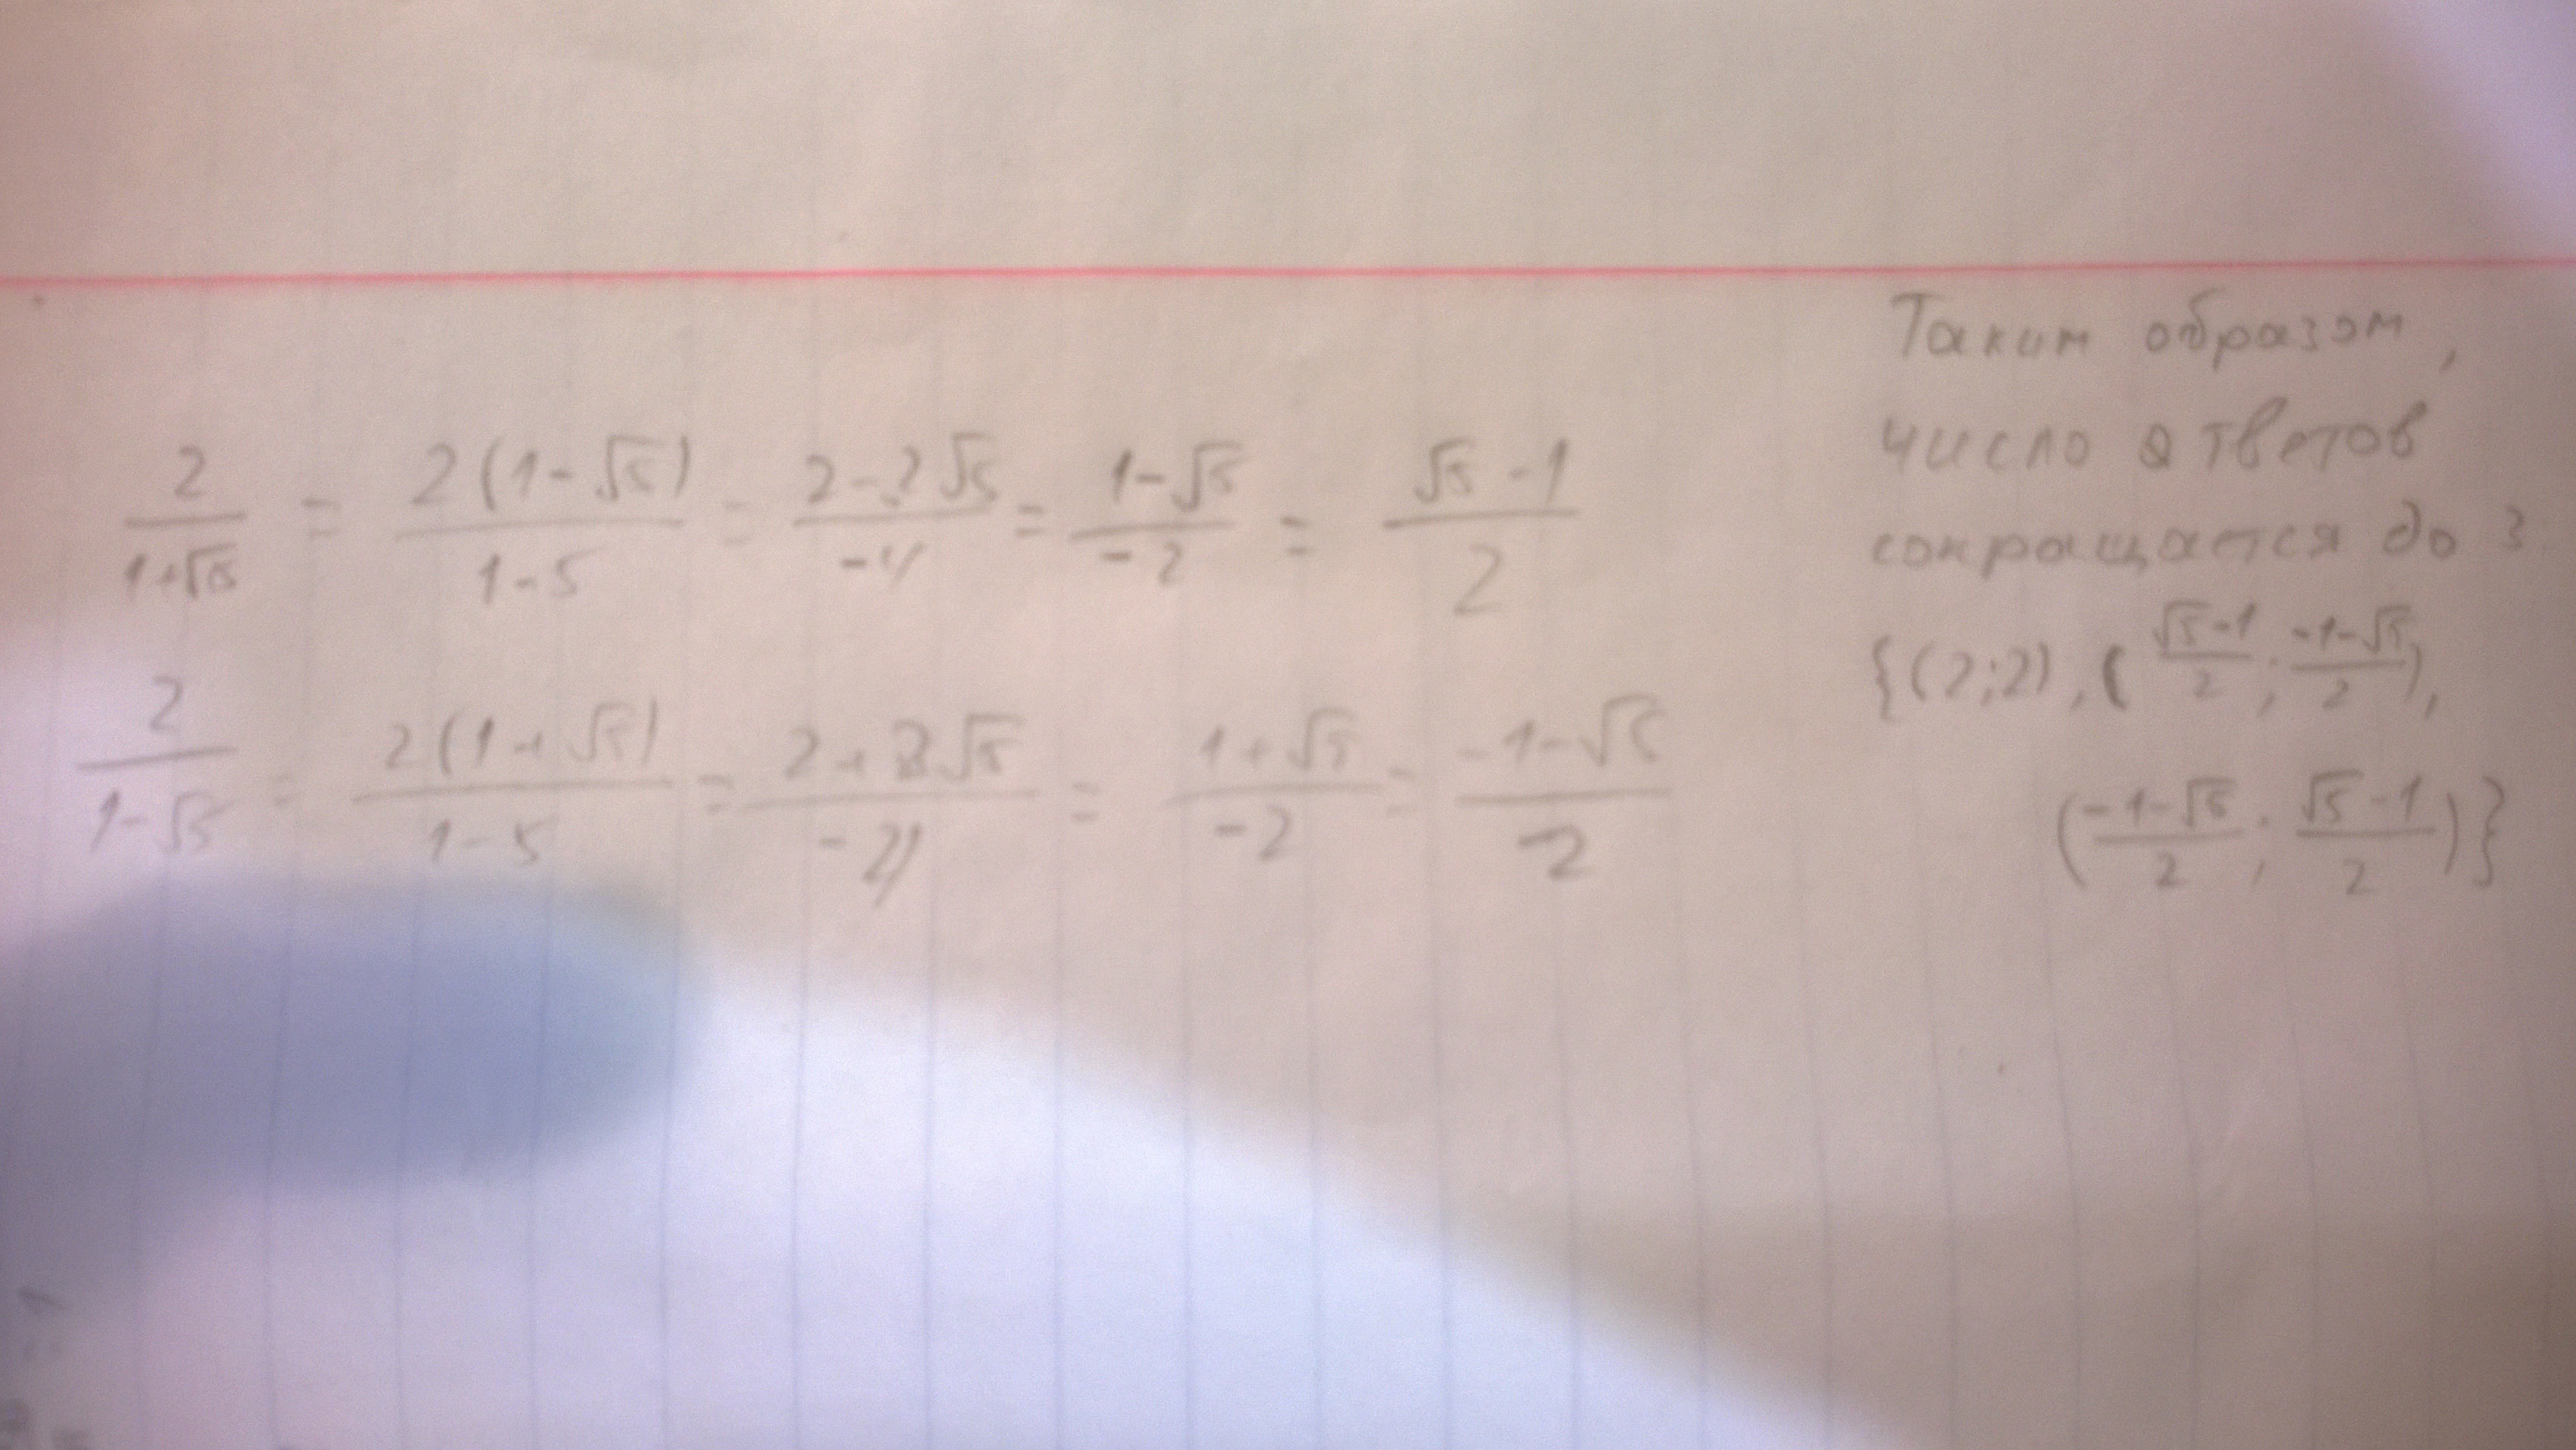 2/(1+√5) = 2(1-√5)/(1-5) = (2-2√5)/(-4) = (1-√5)/(-2) = (√5-1)/2
2/(1-√5) = 2(1+√5)/(1-5) = (2+2√5)/(-4) = (1+√5)/(-2) = (-1-√5)/2
Таким образом,
число ответов
сокращается до 3.
{(2;2), ((√5-1)/2; (-1-√5)/2),
((-1-√5)/2; (√5-1)/2)}